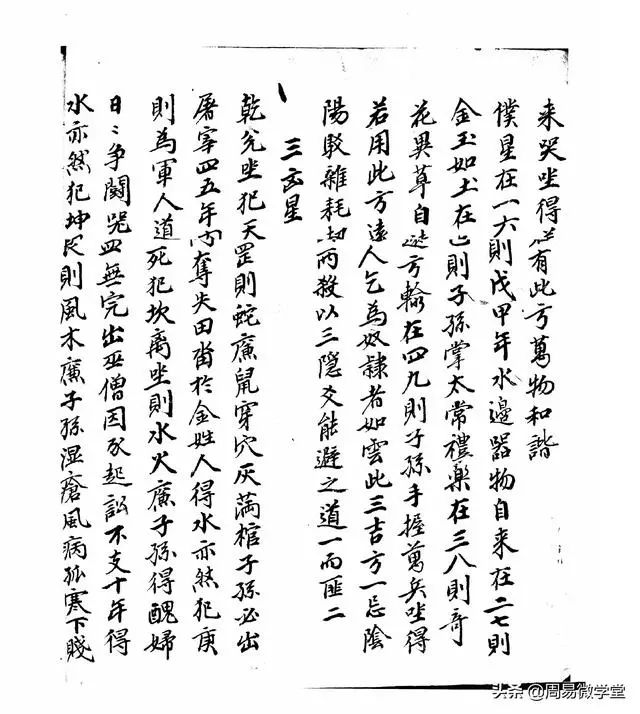 来哭坐得有此方萬物和諧
僕星在一六則戊甲年水邊器物自来在二七則
金玉如土在則子孫掌太常禮藥在三八則奇
花異草自方輸在四九則子孫手握萬兵坐得
若用此方遠人乞為奴隷者如雲此三吉方一忌陰
陽駁雜耗劫两殺以三隐爻能避之道一而匪二
三凶星
乾兊坐犯天罡則蛇廉鼠穿穴灰滿棺子孫必出
屠宰四五年內奪失田畓於金姓人得水亦然犯庚
則為軍人道死犯坎离坐則水火廉子孫得醜婦
日〻争闘哭無完出巫僧因起訟不支十年得
水亦然犯坤艮則風木廉子孫湿瘡風病孤寒下賤
头条 @周易微学堂